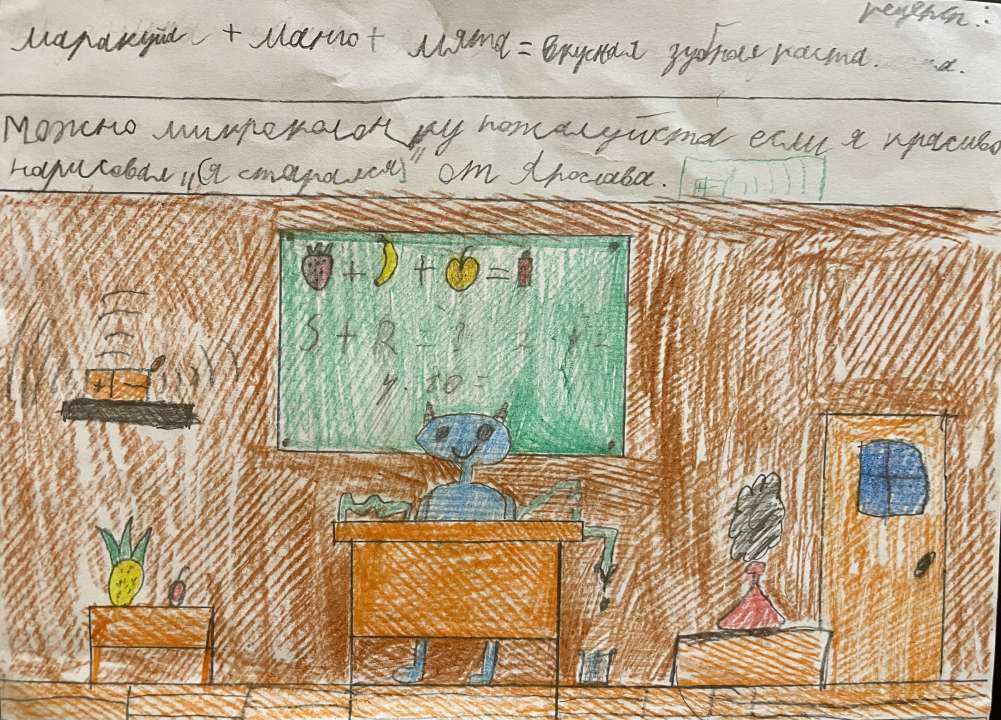 рецепт:
маракуйя + манго + мята = вкусная зубная паста.
Можно микроколонку пожалуйста если я красиво
нарисовал „(я старался)" от Ярослава.
+ + =
S + R = ?
4.10 =